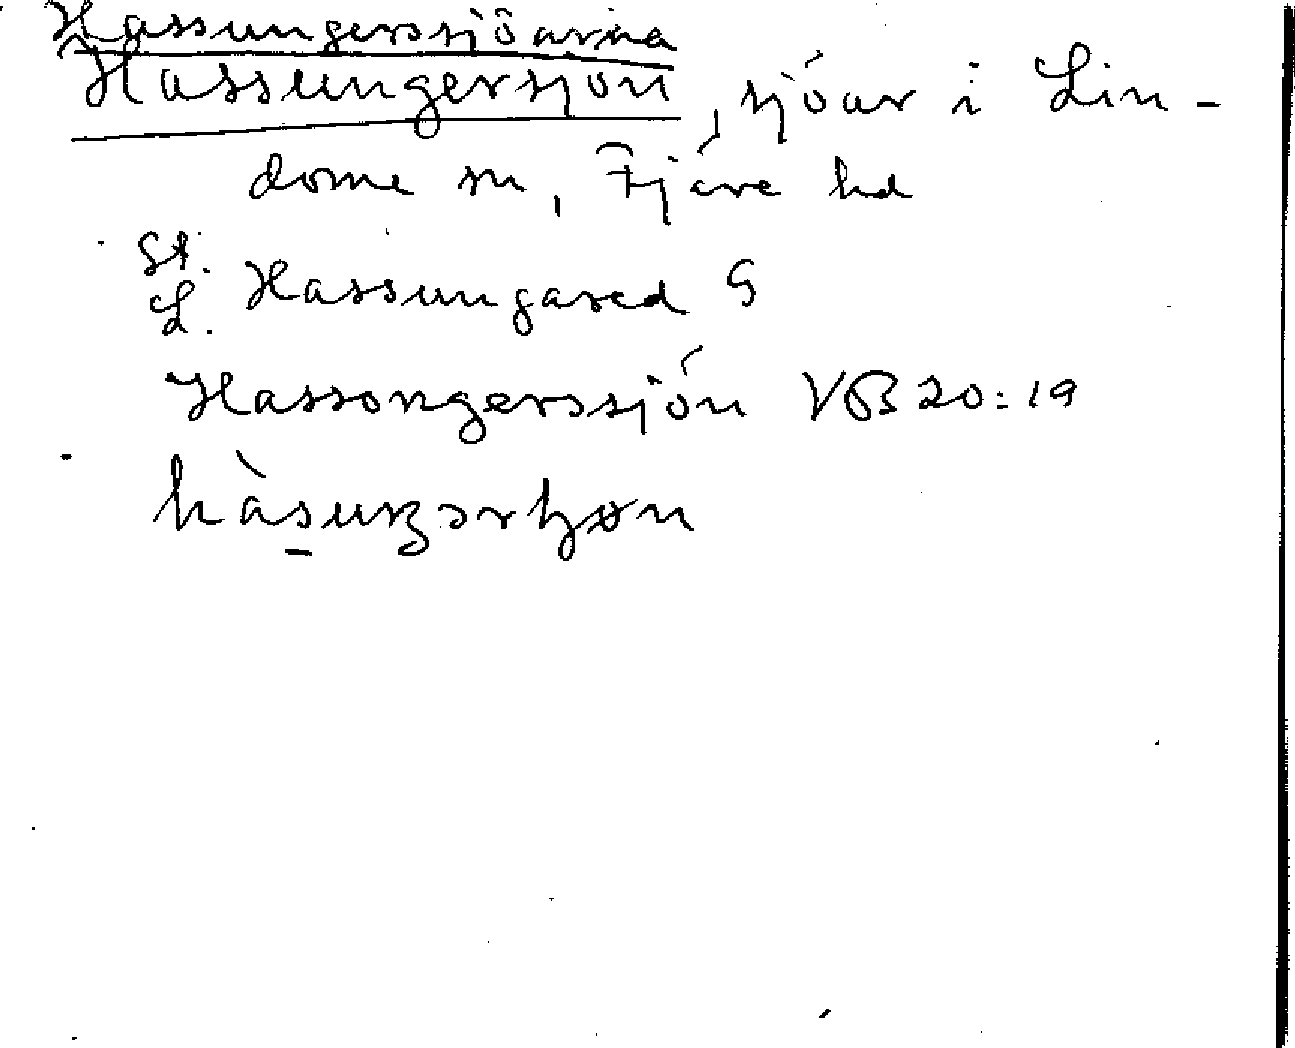 Hassungerssjöarna
Hassungersjön, sjöar i Lin-
dome sn, Fjäre hd
St.
L. Hassungared G
Hassongerssjön VB 20:19